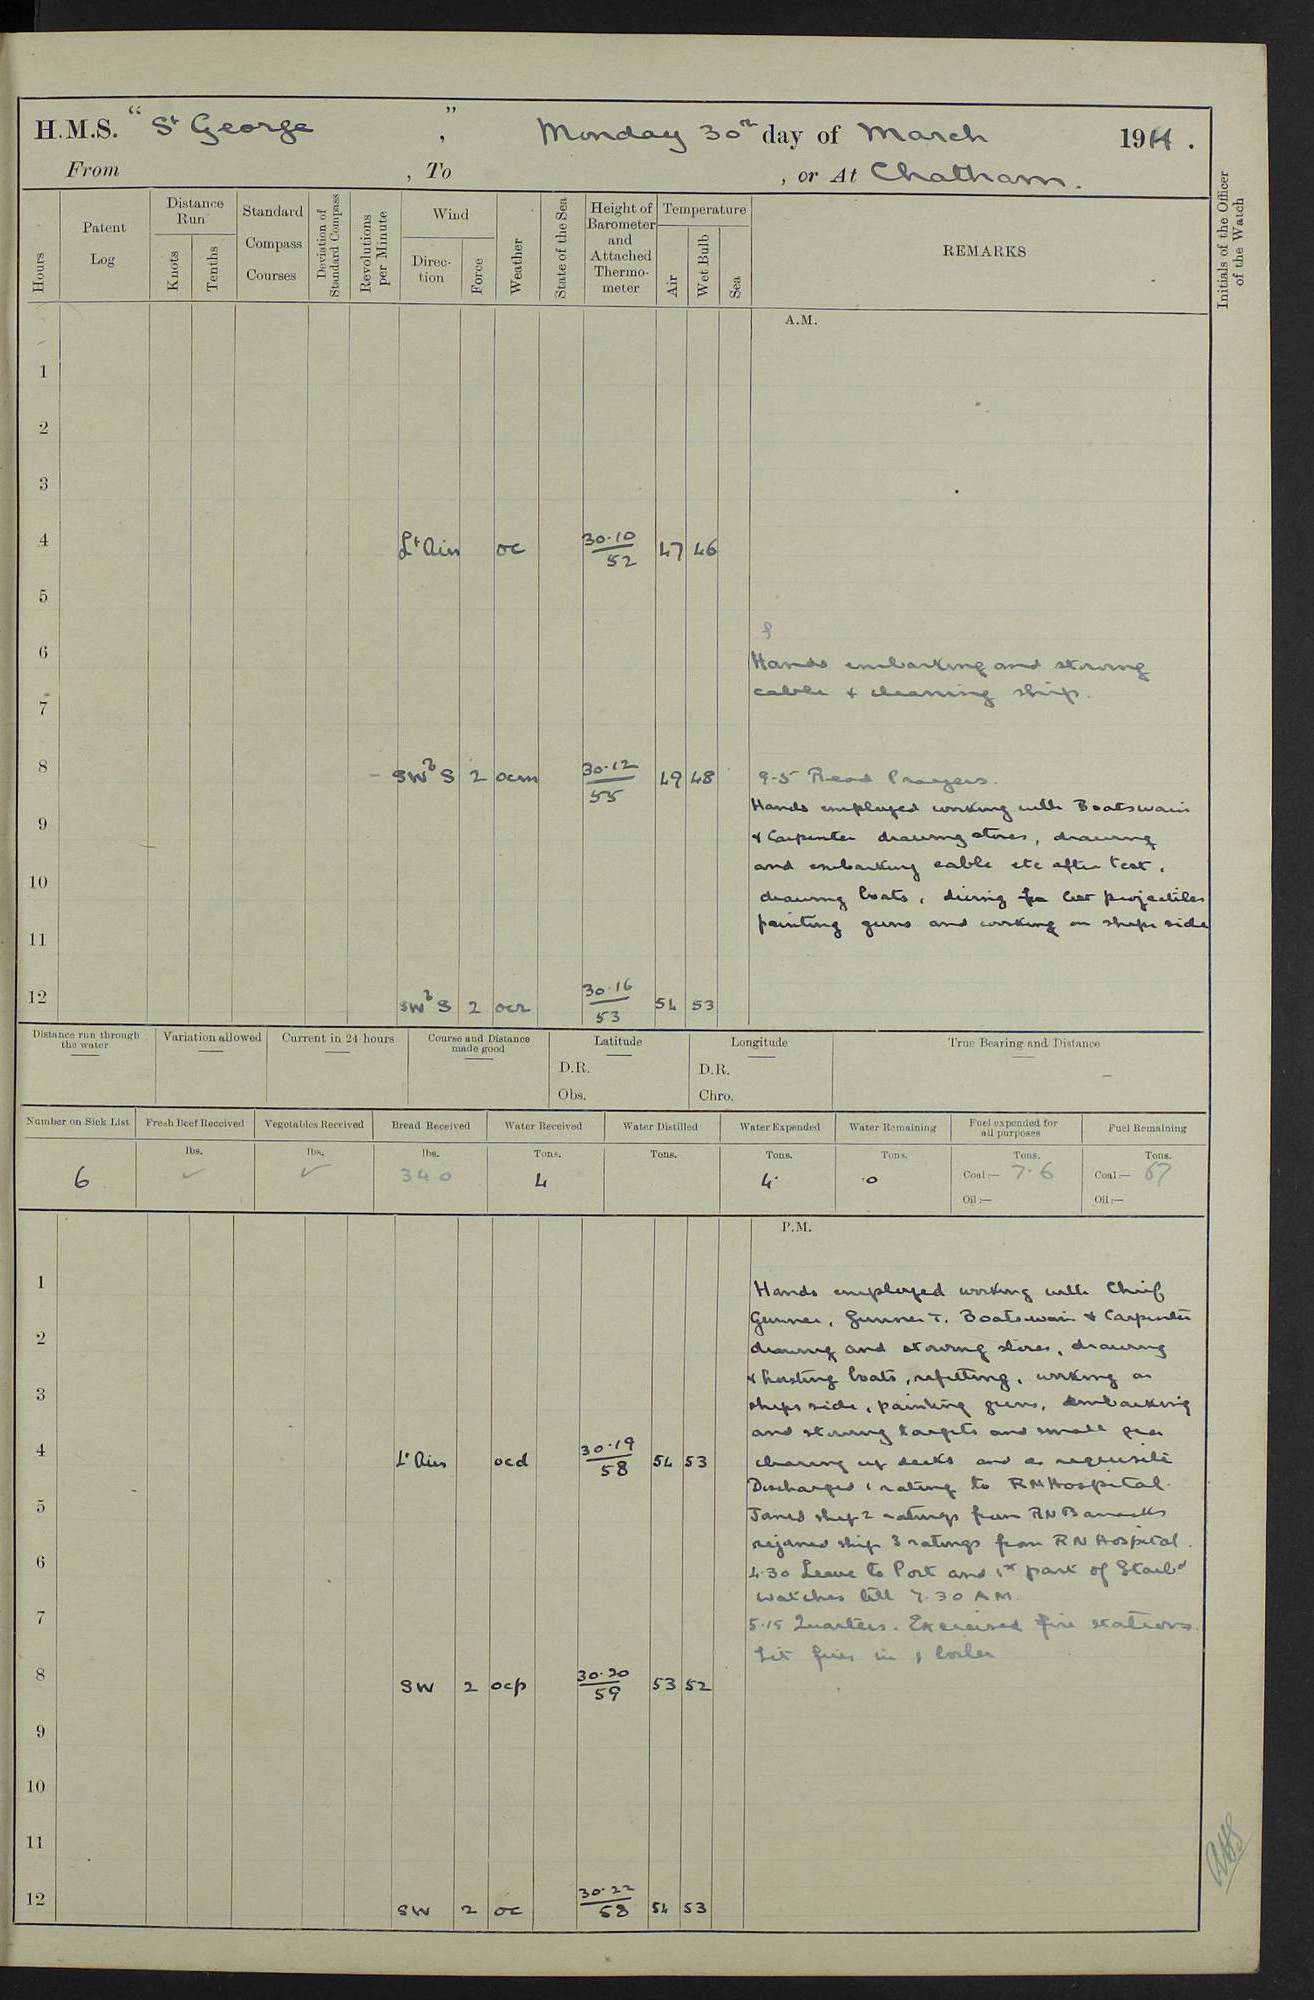 H.M.S. "St George" , Monday 30th day of March 1914.
From , To , or At Chatham.
Hours
Patent Log
Distance Run
Knots
Tenths
Standard Compass Courses
Deviation of Standard Compass
Revolutions per Minute
Wind
Direction
Force
Weather
State of the Sea
Height of Barometer and Attached Thermometer
Temperature
Air
Wet Bulb
Sea
REMARKS
Initials of the Officer of the Watch
A.M.
1
2
3
4 Lt Airs oc 30.10/52 47 46
5
6
Hands embarking and stowing
cable & cleaning ship.
7
8 SWbS 2 ocm 30.12/55 49 48
9.5 Read Prayers.
Hands employed working with Boatswain
9
& Carpenter drawing stores, drawing
and embarking cable etc after test,
10
drawing boats, diving for lost projectiles
painting guns and working on ships side
11
12 SWbS 2 ocr 30.16/53 54 53
Distance run through the water
Variation allowed
Current in 24 hours
Course and Distance made good
Latitude
D.R.
Obs.
Longitude
D.R.
Chro.
True Bearing and Distance
Number on Sick List
Fresh Beef Received
Vegetables Received
Bread Received
Water Received
Water Distilled
Water Expended
Water Remaining
Fuel expended for all purposes
Fuel Remaining
lbs. lbs. lbs. Tons. Tons. Tons. Tons. Tons. Tons.
6 ✓ ✓ 340 4 4 0 Coal:— 7.6 Coal:— 67
Oil:— Oil:—
P.M.
1
Hands employed working with Chief
Gunner, Gunner T. Boatswain & Carpenter
2
drawing and stowing stores, drawing
& hoisting boats, refitting, working on
3
ships side, painting guns, embarking
and stowing targets and small gear
4 Lt Airs ocd 30.19/58 54 53
clearing up decks and as requisite
Discharged 1 rating to RN Hospital.
5
Joined ship 2 ratings from RN Barracks
rejoined ship 3 ratings from RN Hospital.
6
4.30 Leave to Port and 1st part of Starbd
watches till 7.30 AM.
7
5.15 Quarters. Exercised fire stations.
Lit fires in 1 boiler
8 SW 2 ocp 30.20/59 53 52
9
10
11
12 SW 2 oc 30.22/58 54 53